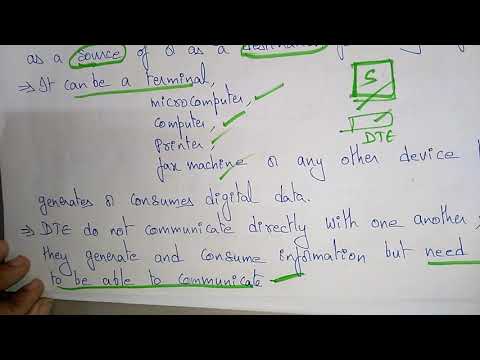 as a source of or as a destination
⇒ It can be a terminal,
microcomputer,
computer,
printer,
fax machine or any other device
generates or consumes digital data.
⇒ DTE do not communicate directly with one another;
they generate and consume information but need
to be able to communicate
S
DTE